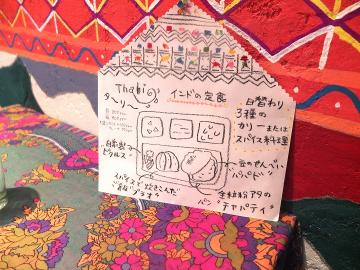 Thali
ターリー
インドの定食
日替わり
3種の
カリーまたは
スパイス料理
自家製
ピクルス
豆のせんべい
パパド
スパイスで炊きこんだ
飯 プラオ
全粒粉アタの
パン チャパティ